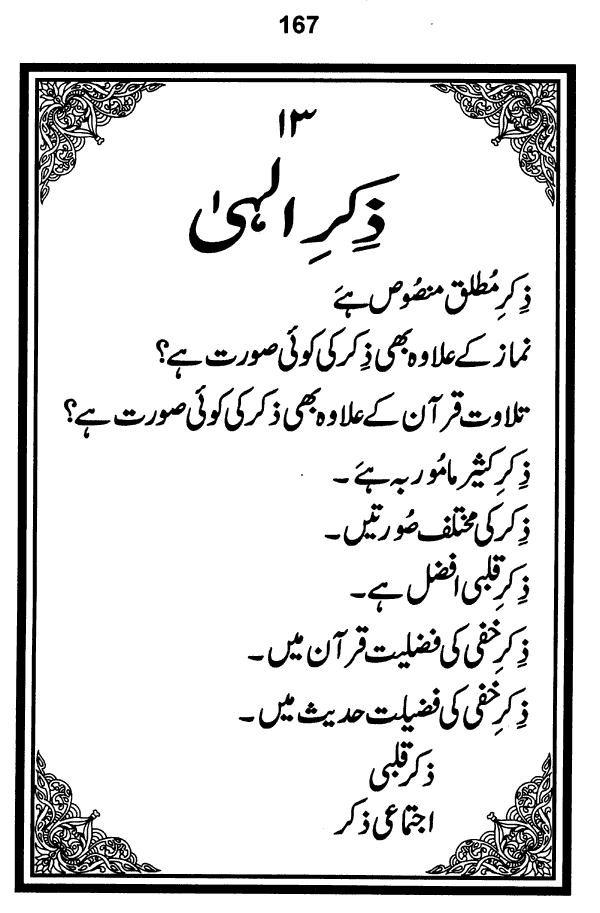 167
۱۳
ذِکرِ الٰہی
ذِکرِ مُطلق منصُوص ہَے
نماز کے علاوہ بھی ذِکر کی کوئی صورت ہے؟
تلاوت قرآن کے علاوہ بھی ذکر کی کوئی صورت ہے؟
ذِکرِ کثیر مامُور بہ ہَے ۔
ذِکر کی مختلف صُورتیں ۔
ذِکرِ قلبی افضل ہے ۔
ذِکرِ خفی کی فضلیت قرآن میں ۔
ذِکرِ خفی کی فضیلت حدیث میں ۔
ذکر قلبی
اجتماعی ذکر